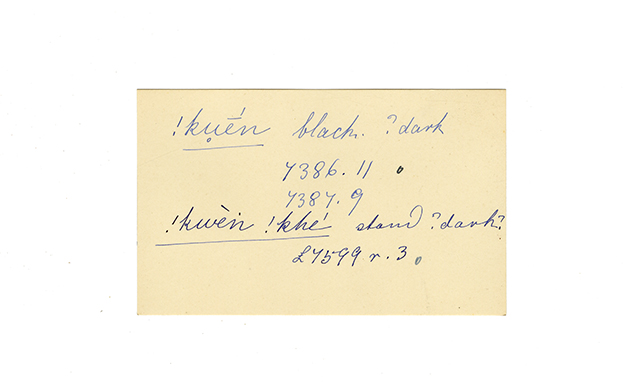 !kụēń black. ?dark
7386.11
7387.9
!kwèn !khé stand ?dark?
£7599 r. 3